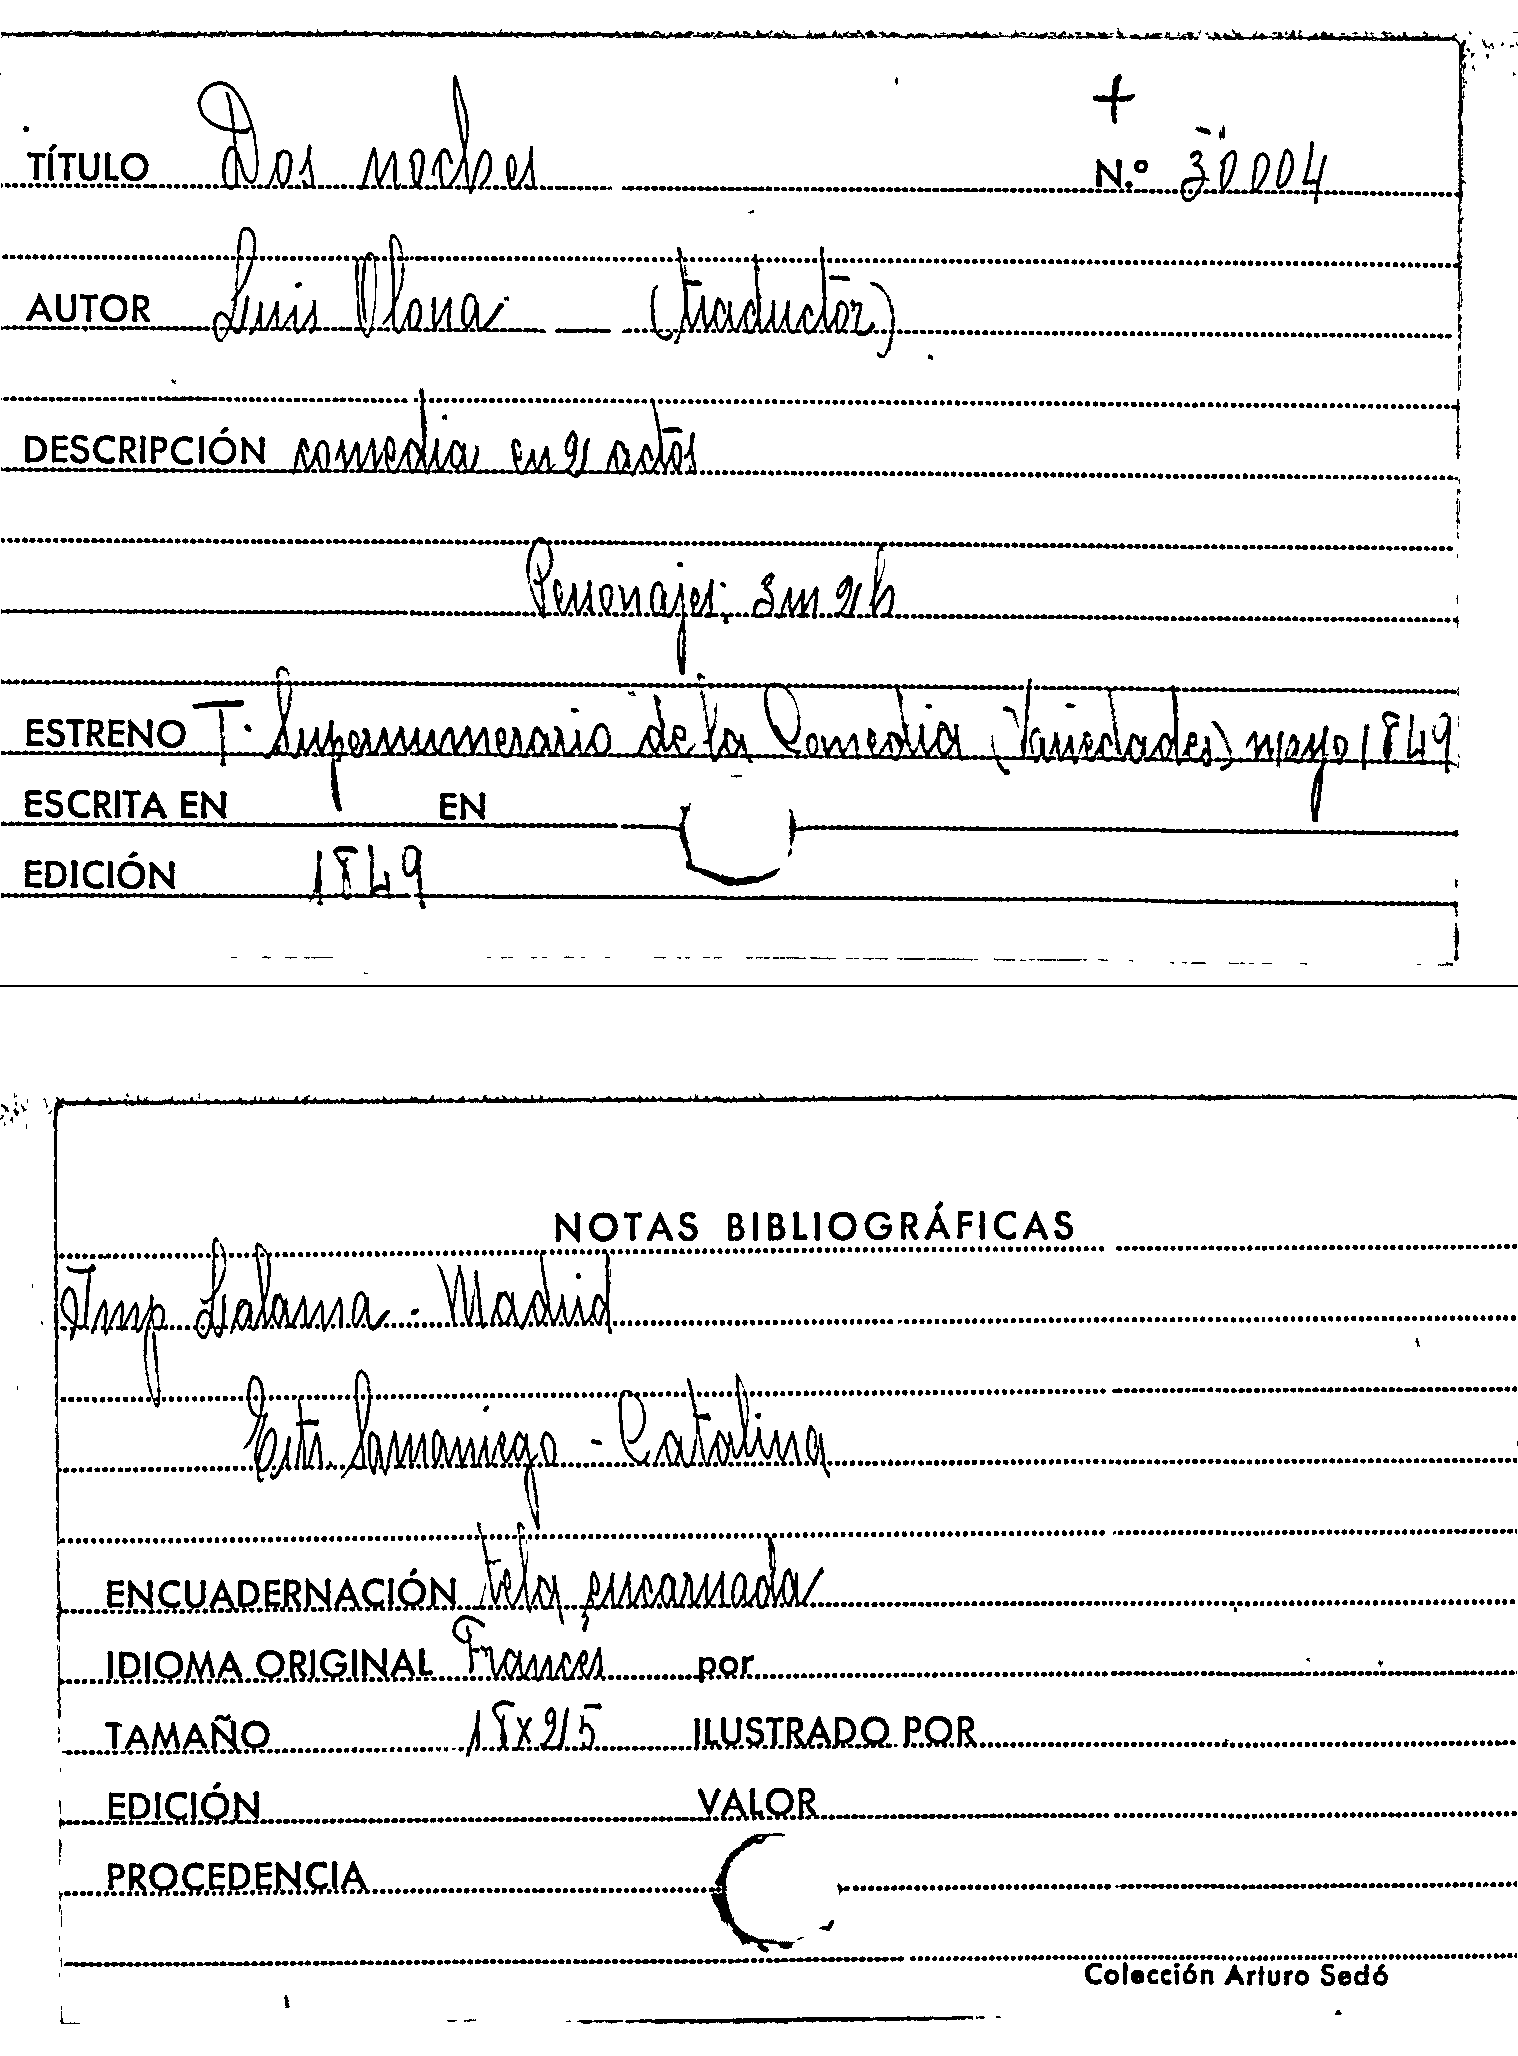 +
TÍTULO Dos noches N.º 30004
AUTOR Luis Olona (traductor)
DESCRIPCIÓN comedia en 2 actos
Personajes: 3m 2h
ESTRENO T. Supernumerario de la Comedia (Variedades) mayo 1849
ESCRITA EN EN
EDICIÓN 1849
NOTAS BIBLIOGRÁFICAS
Imp Lalama - Madrid
Estr. Samaniego - Catalina
ENCUADERNACIÓN tela encarnada
IDIOMA ORIGINAL Francés por
TAMAÑO 18x25 ILUSTRADO POR
EDICIÓN VALOR
PROCEDENCIA
Colección Arturo Sedó